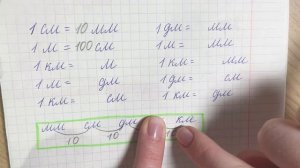 1 см = 10 мм 1 дм = мм
1 м = 100 см 1 м = мм
1 км = м 1 км = мм
1 м = дм 1 дм = см
1 км = см 1 км = дм
мм см дм км
10 10 10